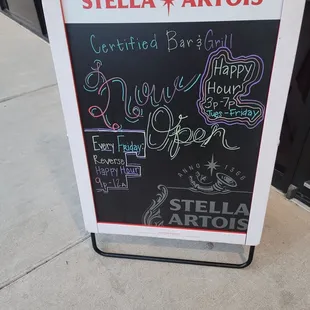 STELLA ★ ARTOIS
Certified Bar & Grill
Now
Open
Happy
Hour
3p-7p
Tues-Friday
Every Friday:
Reverse
Happy Hour
9p-12a
ANNO 1366
STELLA
ARTOIS